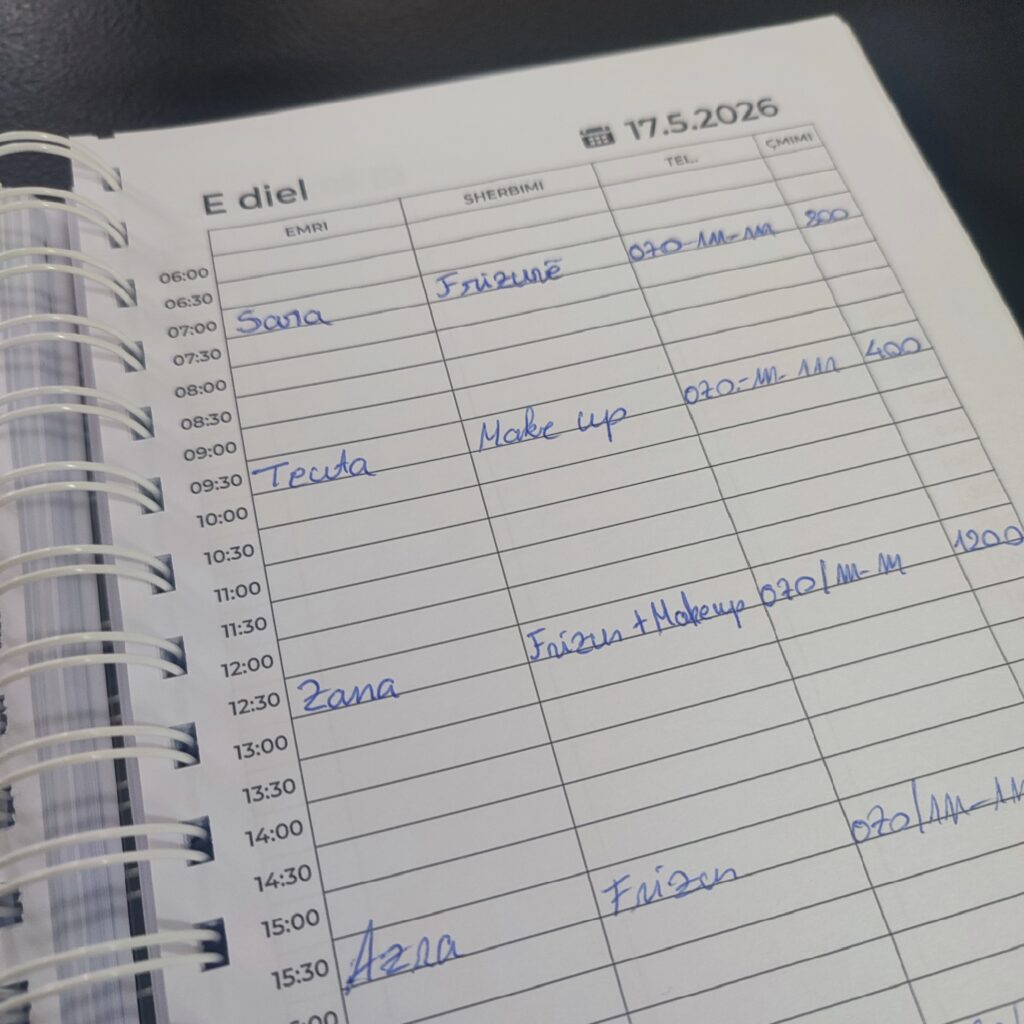 17.5.2026
E diel
EMRI SHERBIMI TEL. ÇMIMI
06:00
06:30
07:00 Sara Frizurë 070-111-111 800
07:30
08:00
08:30
09:00
09:30 Teuta Make up 070-111-111 400
10:00
10:30
11:00
11:30
12:00
12:30 Zana Frizur + Makeup 070/111-111 1200
13:00
13:30
14:00
14:30
15:00
15:30 Azra Frizur 070/111-11